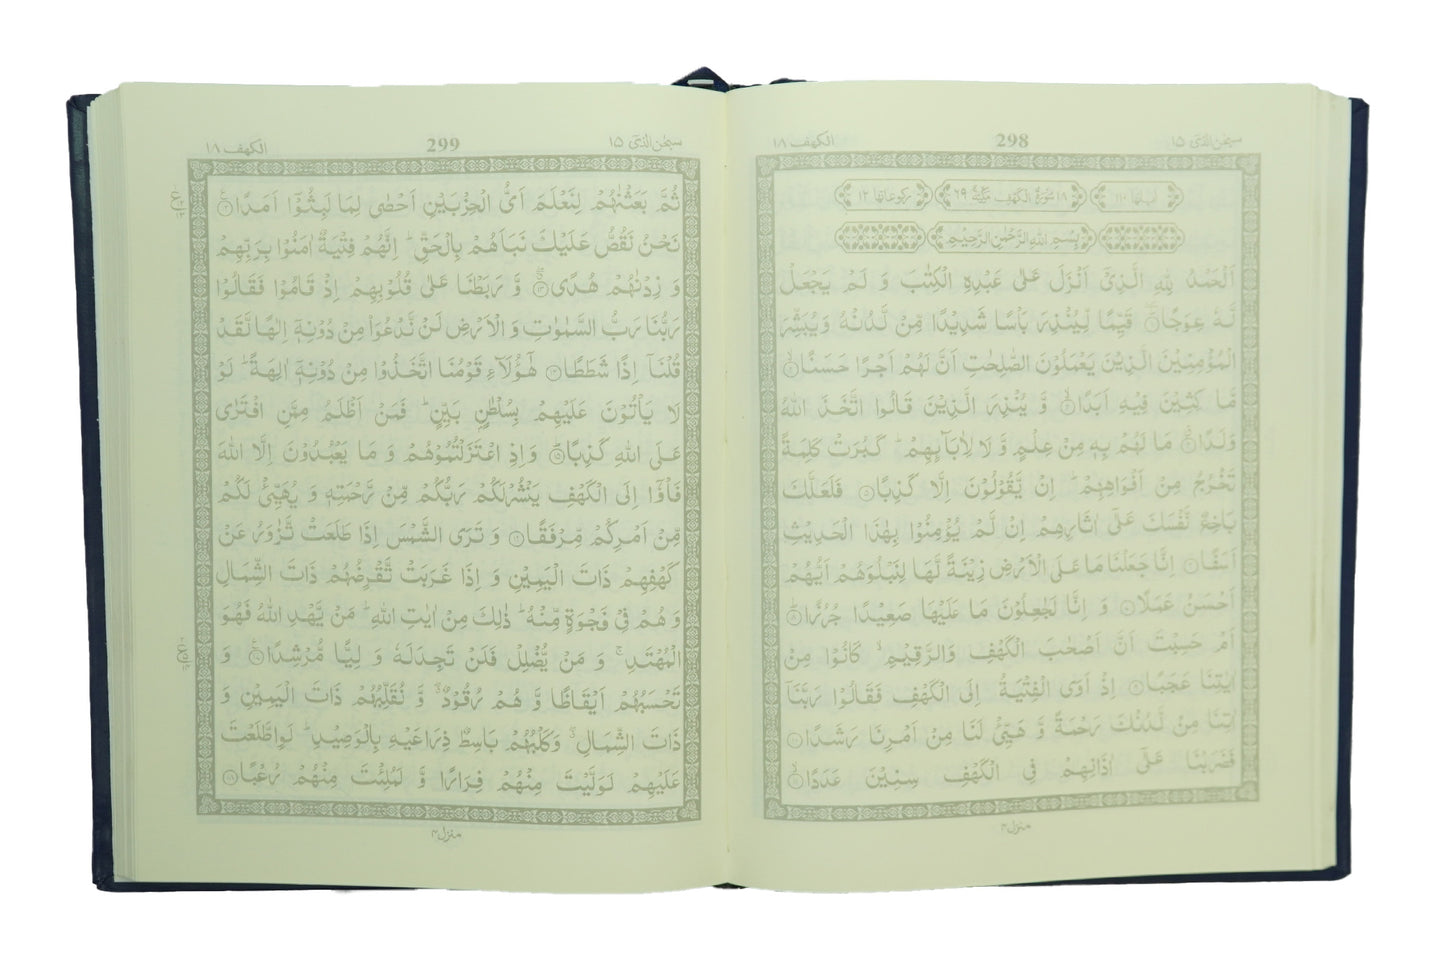 سبحٰن الذی ۱۵
298
الکهف ۱۸
اٰیاتها ۱۱۰
۱۸ سُوْرَةُ الْكَهْفِ مَكِّیَّةٌ ۶۹
رکوعاتها ۱۲
بِسْمِ اللّٰهِ الرَّحْمٰنِ الرَّحِیْمِ
اَلْحَمْدُ لِلّٰهِ الَّذِیْۤ اَنْزَلَ عَلٰى عَبْدِهِ الْكِتٰبَ وَ لَمْ یَجْعَلْ
لَّهٗ عِوَجًاؕ۱ قَیِّمًا لِّیُنْذِرَ بَاْسًا شَدِیْدًا مِّنْ لَّدُنْهُ وَ یُبَشِّرَ
الْمُؤْمِنِیْنَ الَّذِیْنَ یَعْمَلُوْنَ الصّٰلِحٰتِ اَنَّ لَهُمْ اَجْرًا حَسَنًاۙ۲
مَّاكِثِیْنَ فِیْهِ اَبَدًاۙ۳ وَّ یُنْذِرَ الَّذِیْنَ قَالُوا اتَّخَذَ اللّٰهُ
وَلَدًاۗ۴ مَا لَهُمْ بِهٖ مِنْ عِلْمٍ وَّ لَا لِاٰبَآىِٕهِمْؕ كَبُرَتْ كَلِمَةً
تَخْرُجُ مِنْ اَفْوَاهِهِمْؕ اِنْ یَّقُوْلُوْنَ اِلَّا كَذِبًا۵ فَلَعَلَّكَ
بَاخِعٌ نَّفْسَكَ عَلٰۤى اٰثَارِهِمْ اِنْ لَّمْ یُؤْمِنُوْا بِهٰذَا الْحَدِیْثِ
اَسَفًا۶ اِنَّا جَعَلْنَا مَا عَلَى الْاَرْضِ زِیْنَةً لَّهَا لِنَبْلُوَهُمْ اَیُّهُمْ
اَحْسَنُ عَمَلًا۷ وَ اِنَّا لَجٰعِلُوْنَ مَا عَلَیْهَا صَعِیْدًا جُرُزًاؕ۸
اَمْ حَسِبْتَ اَنَّ اَصْحٰبَ الْكَهْفِ وَ الرَّقِیْمِۙ كَانُوْا مِنْ
اٰیٰتِنَا عَجَبًا۹ اِذْ اَوَى الْفِتْیَةُ اِلَى الْكَهْفِ فَقَالُوْا رَبَّنَاۤ
اٰتِنَا مِنْ لَّدُنْكَ رَحْمَةً وَّ هَیِّئْ لَنَا مِنْ اَمْرِنَا رَشَدًا۱۰
فَضَرَبْنَا عَلٰۤى اٰذَانِهِمْ فِی الْكَهْفِ سِنِیْنَ عَدَدًاۙ۱۱
منزل ۴
سبحٰن الذی ۱۵
299
الکهف ۱۸
ثُمَّ بَعَثْنٰهُمْ لِنَعْلَمَ اَیُّ الْحِزْبَیْنِ اَحْصٰى لِمَا لَبِثُوْۤا اَمَدًا۱۲
نَحْنُ نَقُصُّ عَلَیْكَ نَبَاَهُمْ بِالْحَقِّؕ اِنَّهُمْ فِتْیَةٌ اٰمَنُوْا بِرَبِّهِمْ
وَ زِدْنٰهُمْ هُدًىۗۖ۱۳ وَّ رَبَطْنَا عَلٰى قُلُوْبِهِمْ اِذْ قَامُوْا فَقَالُوْا
رَبُّنَا رَبُّ السَّمٰوٰتِ وَ الْاَرْضِ لَنْ نَّدْعُوَاۡ مِنْ دُوْنِهٖۤ اِلٰهًا لَّقَدْ
قُلْنَاۤ اِذًا شَطَطًا۱۴ هٰۤؤُلَآءِ قَوْمُنَا اتَّخَذُوْا مِنْ دُوْنِهٖۤ اٰلِهَةًؕ لَوْ
لَا یَاْتُوْنَ عَلَیْهِمْ بِسُلْطٰنٍۭ بَیِّنٍؕ فَمَنْ اَظْلَمُ مِمَّنِ افْتَرٰى
عَلَى اللّٰهِ كَذِبًاؕ۱۵ وَ اِذِ اعْتَزَلْتُمُوْهُمْ وَ مَا یَعْبُدُوْنَ اِلَّا اللّٰهَ
فَاْوٗۤا اِلَى الْكَهْفِ یَنْشُرْ لَكُمْ رَبُّكُمْ مِّنْ رَّحْمَتِهٖ وَ یُهَیِّئْ لَكُمْ
مِّنْ اَمْرِكُمْ مِّرْفَقًا۱۶ وَ تَرَى الشَّمْسَ اِذَا طَلَعَتْ تَّزٰوَرُ عَنْ
كَهْفِهِمْ ذَاتَ الْیَمِیْنِ وَ اِذَا غَرَبَتْ تَّقْرِضُهُمْ ذَاتَ الشِّمَالِ
وَ هُمْ فِیْ فَجْوَةٍ مِّنْهُؕ ذٰلِكَ مِنْ اٰیٰتِ اللّٰهِؕ مَنْ یَّهْدِ اللّٰهُ فَهُوَ
الْمُهْتَدِۚ وَ مَنْ یُّضْلِلْ فَلَنْ تَجِدَ لَهٗ وَلِیًّا مُّرْشِدًا۱۷ وَ
تَحْسَبُهُمْ اَیْقَاظًا وَّ هُمْ رُقُوْدٌ ۖۗ وَّ نُقَلِّبُهُمْ ذَاتَ الْیَمِیْنِ وَ
ذَاتَ الشِّمَالِ ۖۗ وَ كَلْبُهُمْ بَاسِطٌ ذِرَاعَیْهِ بِالْوَصِیْدِؕ لَوِ اطَّلَعْتَ
عَلَیْهِمْ لَوَلَّیْتَ مِنْهُمْ فِرَارًا وَّ لَمُلِئْتَ مِنْهُمْ رُعْبًا۱۸
منزل ۴